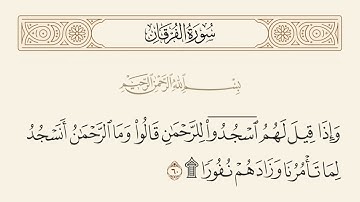 سُورَةُ الْفُرْقَانِ
بِسْمِ اللَّهِ الرَّحْمَٰنِ الرَّحِيمِ
وَإِذَا قِيلَ لَهُمُ ٱسْجُدُوا۟ لِلرَّحْمَٰنِ قَالُوا۟ وَمَا ٱلرَّحْمَٰنُ أَنَسْجُدُ
لِمَا تَأْمُرُنَا وَزَادَهُمْ نُفُورًا ۩ ٦٠